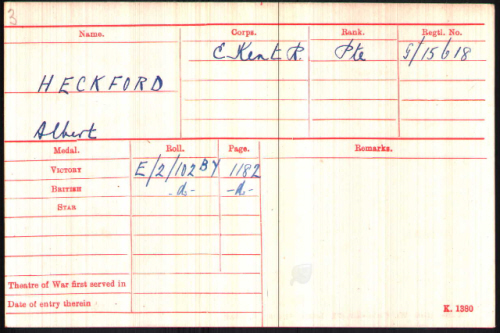 3
Name. Corps. Rank. Regtl. No.
E. Kent R. Pte G/15618
HECKFORD
Albert
Medal. Roll. Page. Remarks.
VICTORY E/2/102BY 1182
BRITISH -d- -d-
STAR
Theatre of War first served in
Date of entry therein
K. 1380